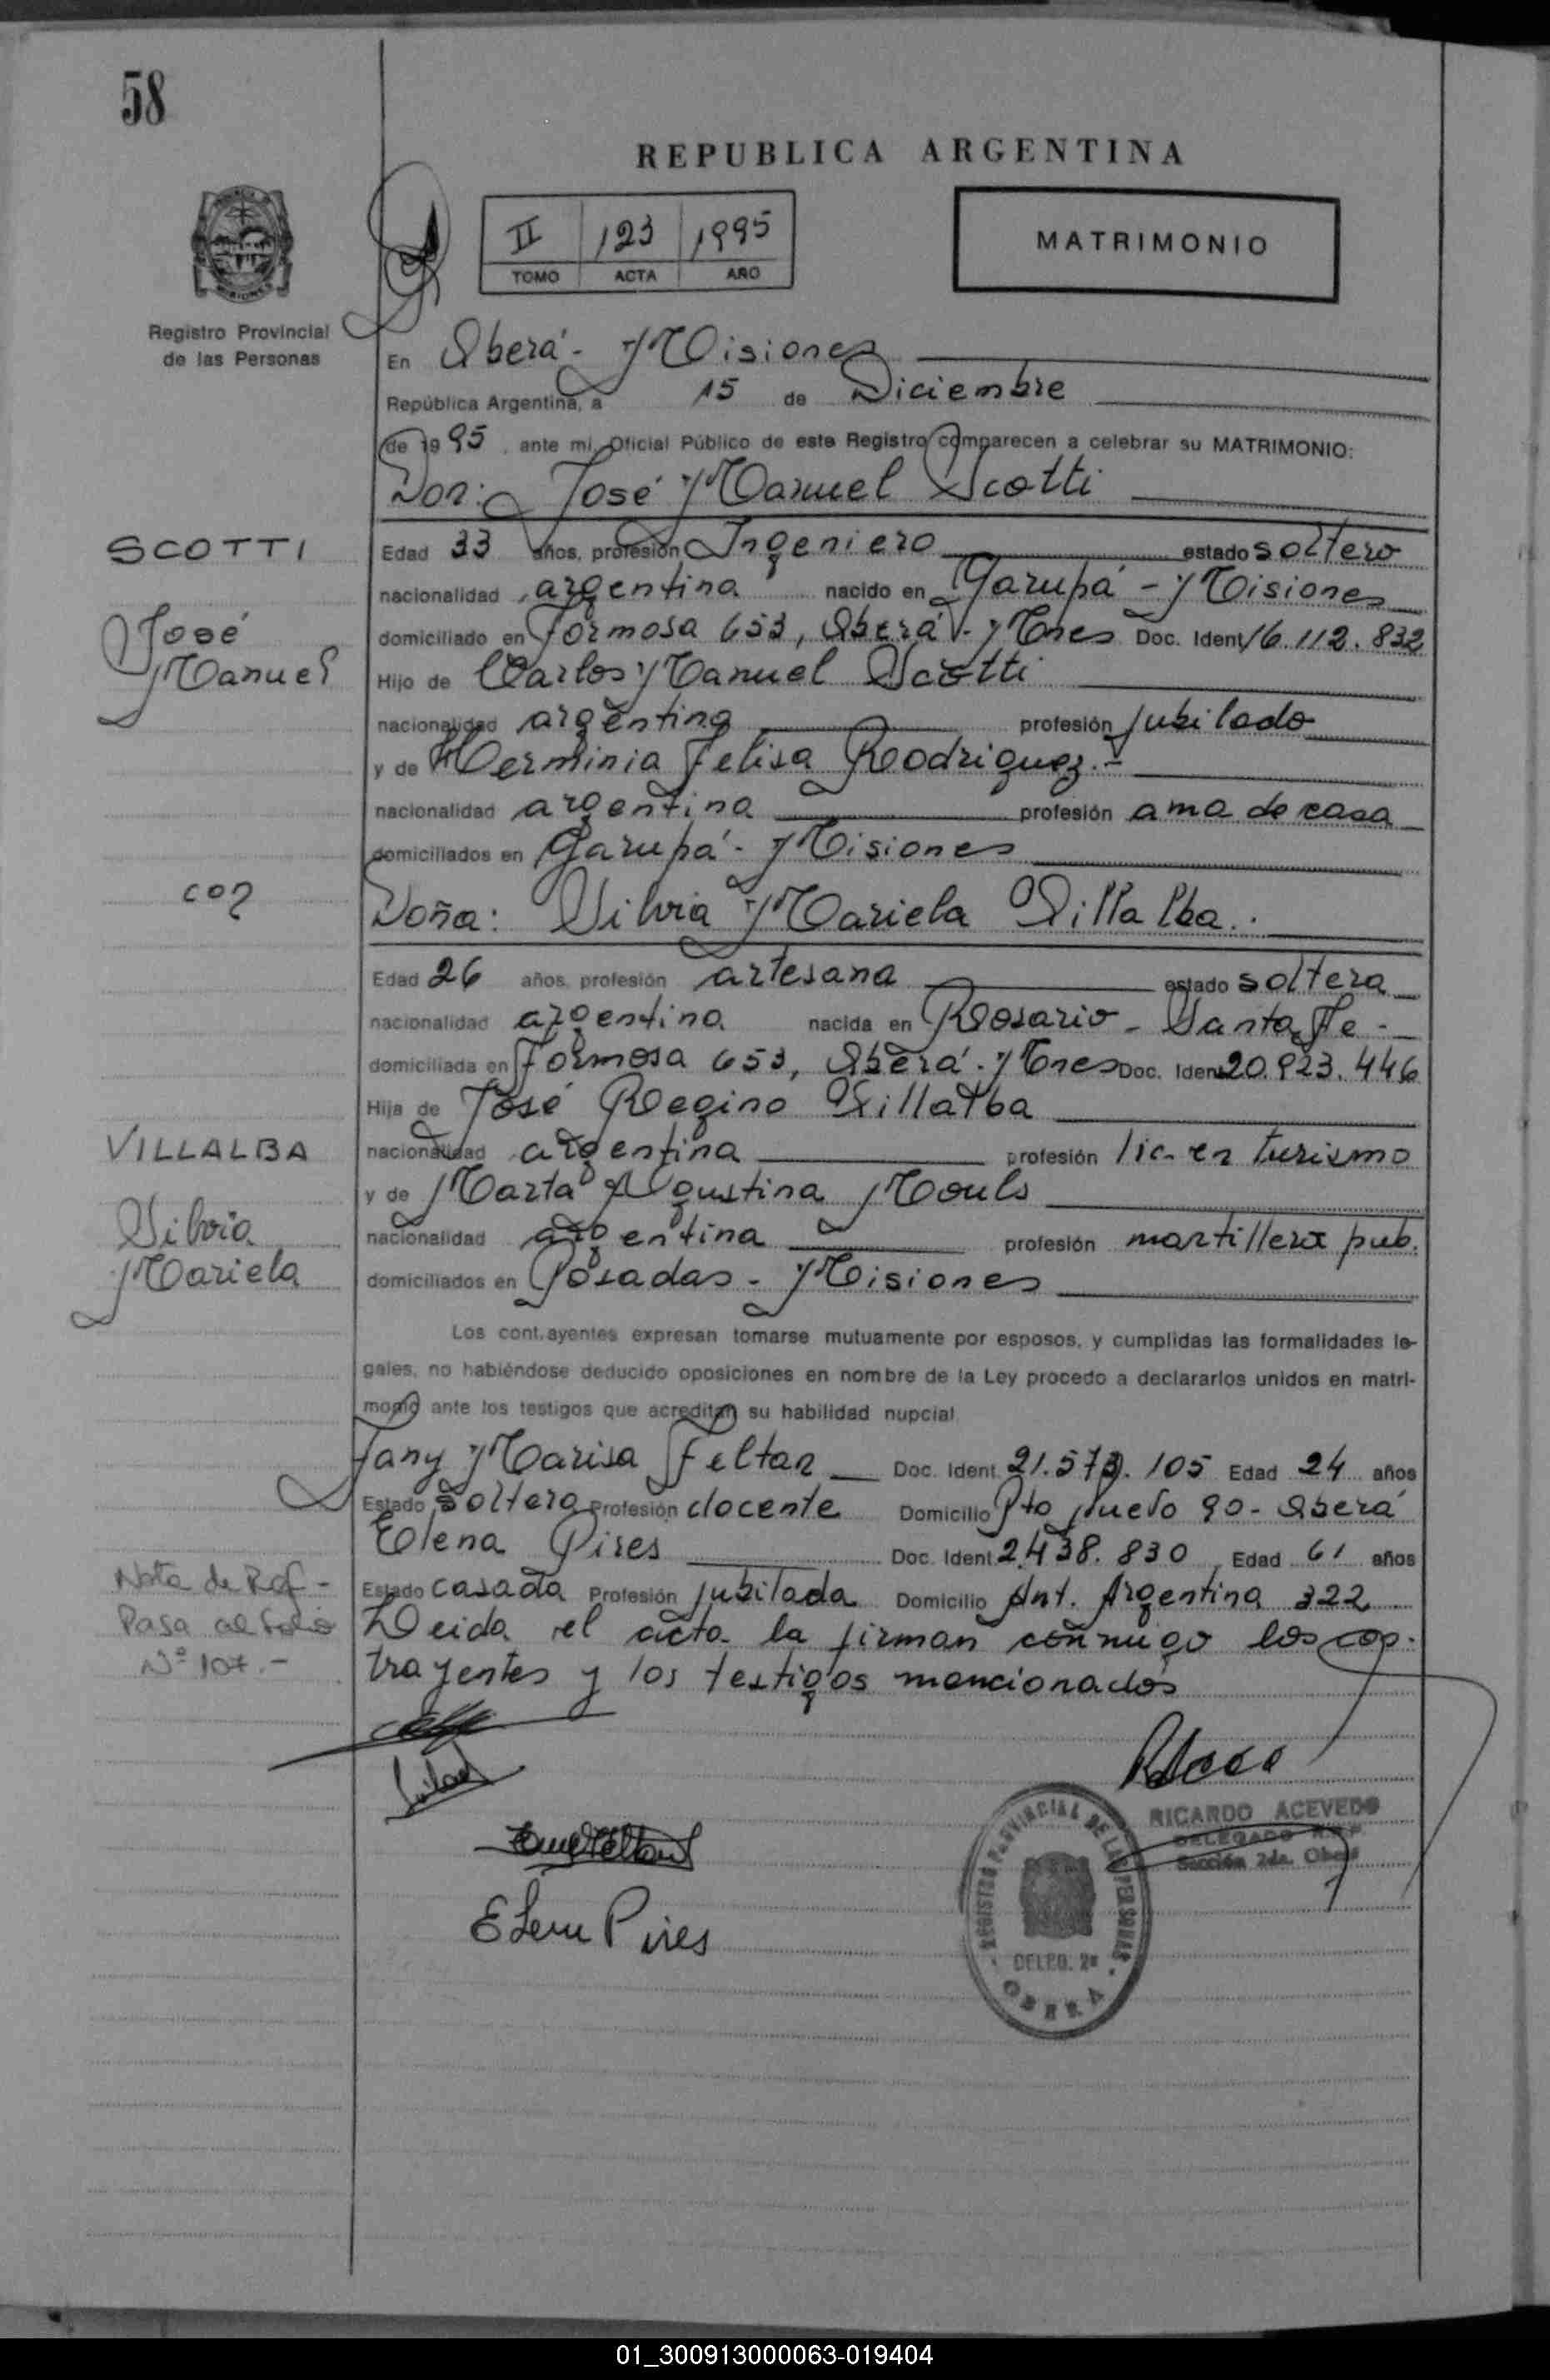 58
REPUBLICA ARGENTINA
II 123 1995
TOMO ACTA AÑO
MATRIMONIO
Registro Provincial
de las Personas
En Oberá - Misiones
República Argentina, a 15 de Diciembre
de 1995, ante mi, Oficial Público de este Registro comparecen a celebrar su MATRIMONIO:
Don: José Manuel Scotti
SCOTTI
José
Manuel
Edad 33 años, profesión Ingeniero estado soltero
nacionalidad argentina nacido en Garupá - Misiones
domiciliado en Formosa 653, Oberá - Mnes Doc. Ident 16.112.832
Hijo de Carlos Manuel Scotti
nacionalidad argentina profesión jubilado
y de Herminia Felisa Rodriguez.-
nacionalidad argentina profesión ama de casa
domiciliados en Garupá - Misiones
con
Doña: Silvia Mariela Villalba.
Edad 26 años, profesión artesana estado soltera
nacionalidad argentina nacida en Rosario - Santa Fe -
domiciliada en Formosa 653, Oberá - Mnes Doc. Ident 20.923.446
Hija de José Regino Villalba
VILLALBA
Silvia
Mariela
nacionalidad argentina profesión lic. en turismo
y de Marta Agustina Mouls
nacionalidad argentina profesión martillera pub.
domiciliados en Posadas - Misiones
Los contrayentes expresan tomarse mutuamente por esposos, y cumplidas las formalidades le-
gales, no habiéndose deducido oposiciones en nombre de la Ley procedo a declararlos unidos en matri-
monio ante los testigos que acreditan su habilidad nupcial
Fany Marisa Feltan Doc. Ident. 21.573.105 Edad 24 años
Estado soltera Profesión docente Domicilio Pto Nuevo 90 - Oberá
Elena Pires Doc. Ident 2.438.830 Edad 61 años
Estado casada Profesión jubilada Domicilio Ant. Argentina 322
Nota de Ref -
Pasa al folio
Nº 107.-
Leida el acta la firman conmigo los con-
trayentes y los testigos mencionados
RICARDO ACEVEDO
DELEGADO R.P.P.
Sección 2da. Oberá
REGISTRO PROVINCIAL DE LAS PERSONAS
DELEG. 2ª
OBERA
Elena Pires
01_300913000063-019404